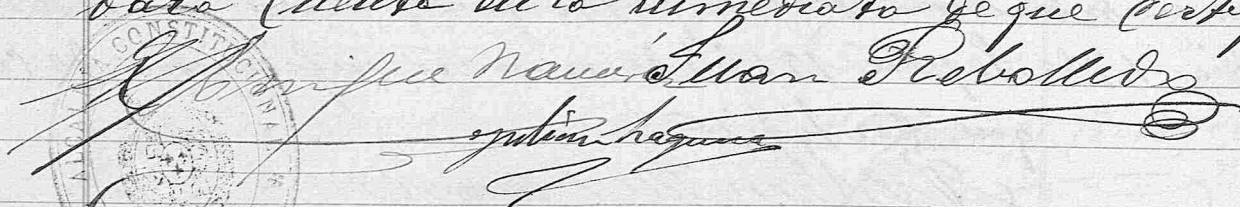 dará cuenta en la inmediata de que certi
Enrique Navarro Juan Rebolledo
Julián Laguna
CONSTITUCIONAL